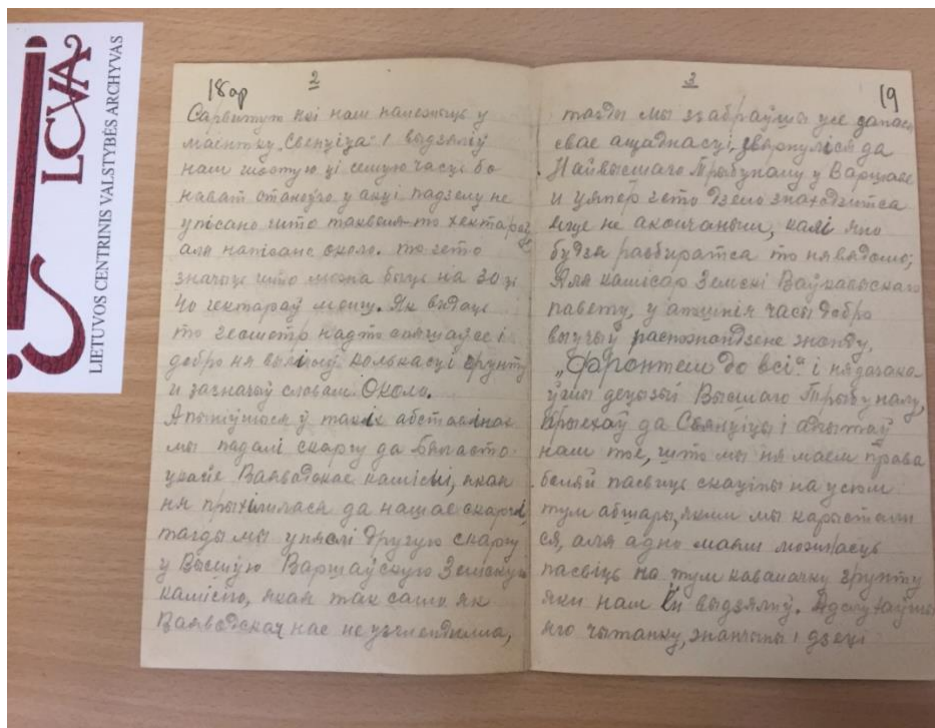 LCVA
LIETUVOS CENTRINIS VALSTYBĖS ARCHYVAS
18ар
2
Сарвитут які нам належыць у
маёнтку „Свенціца" і выдзяліў
нам шостую ці семую часць бо
нават станоўчо у акці падзелу не
упісано што таквели-то хектараў,
аля напісано около. то гето
значыць што можа быць на 30 ці
40 гектараў меньш. Як видаць
то геометр надто спяшаўсе і
добро ня вымірыў колькасці грунту
и зазначыў словам. Около.
Апынуўшыся ў такіх абставінах
мы падалі скаргу да Бяласто-
цкайе Ваяводскае камісіі, якая
ня прыхілилася да нашае скаргі,
тагды мы унясли другую скаргу
у Вышшую Варшаўскую Земскую
камісію, якая так само як
Ваяводская нас не узглендзила,
3
19
тагды мы забраўшы усе запасы
свае ащаднасці, звярнуліся да
Найвысшаго Трыбуналу у Варшаве
и уяпер гето дзело знаходзитса
яще не акончаным, калі яно
будзя разбиратса то ня вядомо;
Аля камісар Земскі Ваўкавыскаго
павету, у
часы добро
выучыў
„Фронтем до всі" і нядачака-
ўшы децызыі Высшаго Трыбуналу,
Прыехаў да Свянціцы і
нам тое, што мы ня маем права
болей пасвиць скаціны на усюм
тум абшары, яким мы карысталі
ся, аля адно маем можнасць
пасвіць на тум кавалачку грунту
яки нам ён выдзяліў. Адслухаўшы
яго чытанку,
і дзеці